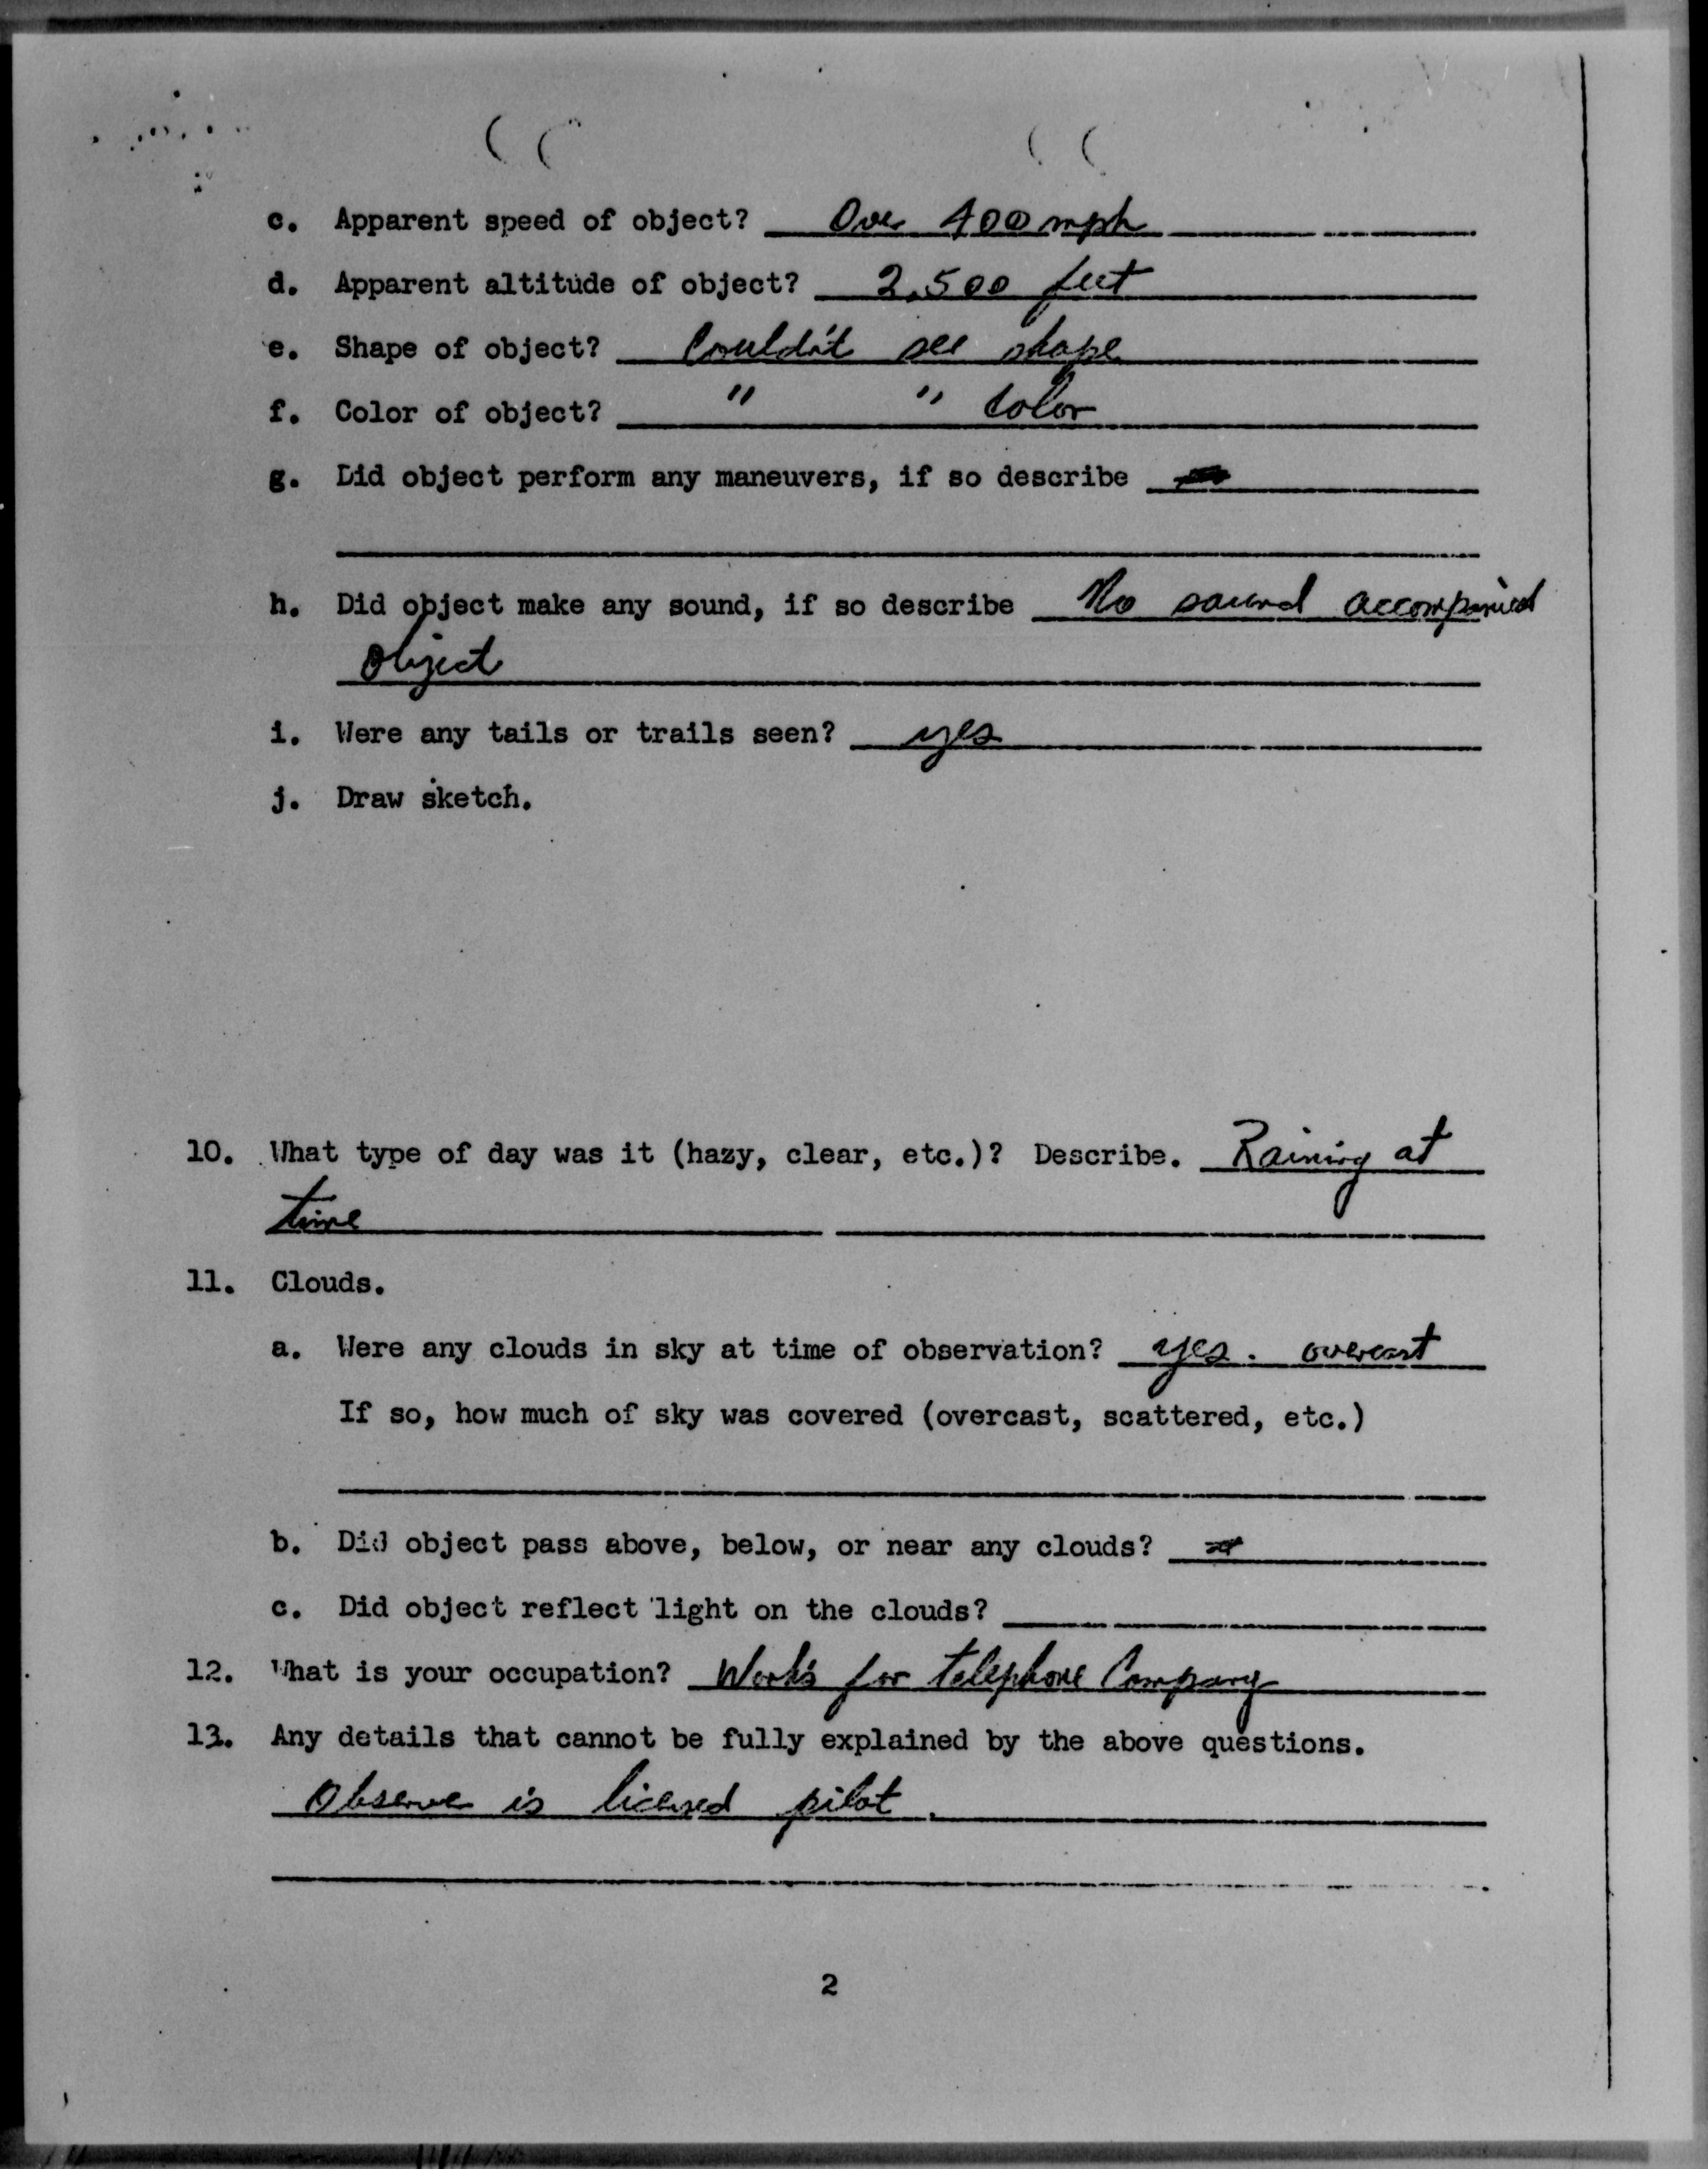 c. Apparent speed of object? Over 400 mph
d. Apparent altitude of object? 2,500 feet
e. Shape of object? Couldn't see shape
f. Color of object? " " Color
g. Did object perform any maneuvers, if so describe
h. Did object make any sound, if so describe No sound accompanied
object
i. Were any tails or trails seen? yes
j. Draw sketch.
10. What type of day was it (hazy, clear, etc.)? Describe. Raining at
time
11. Clouds.
a. Were any clouds in sky at time of observation? yes. overcast
If so, how much of sky was covered (overcast, scattered, etc.)
b. Did object pass above, below, or near any clouds?
c. Did object reflect light on the clouds?
12. What is your occupation? Works for telephone Company
13. Any details that cannot be fully explained by the above questions.
Observer is licensed pilot.
2